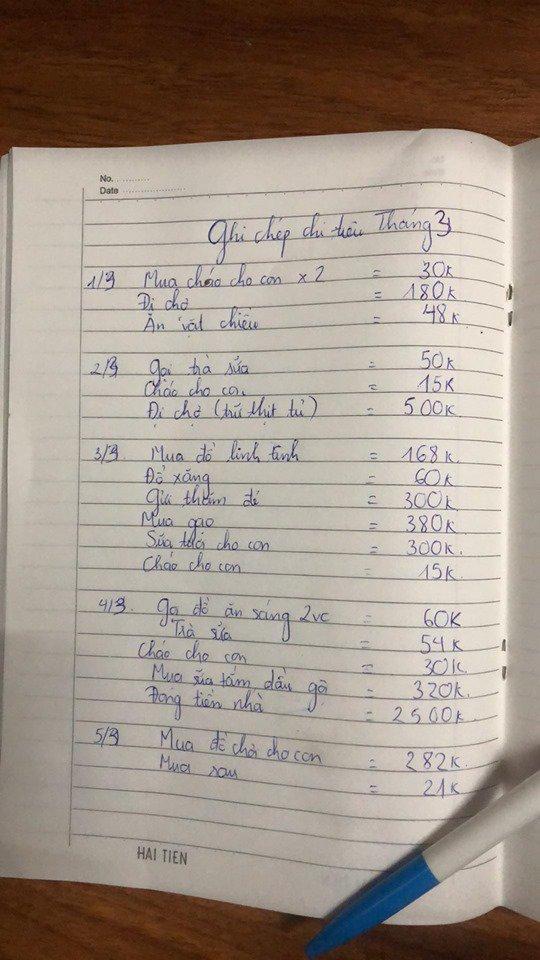 No. ............
Date ......................
Ghi chép chi tiêu Tháng 3
1/3 Mua cháo cho con x 2 = 30K
Đi chợ = 180K
Ăn vặt chiều = 48K
2/3 Gọi trà sữa = 50K
Cháo cho con = 15K
Đi chợ (trữ thịt tủ) = 500K
3/3 Mua đồ linh tinh = 168K
Đổ xăng = 60K
Gửi thăm đẻ = 300K
Mua gạo = 380K
Sữa tươi cho con = 300K
Cháo cho con = 15K
4/3. Gọi đồ ăn sáng 2vc = 60K
Trà sữa = 54K
Cháo cho con = 30K
Mua sữa tắm dầu gội = 320K
Đóng tiền nhà = 2500K
5/3 Mua đồ chơi cho con = 282K
Mua rau = 21K
HAI TIEN